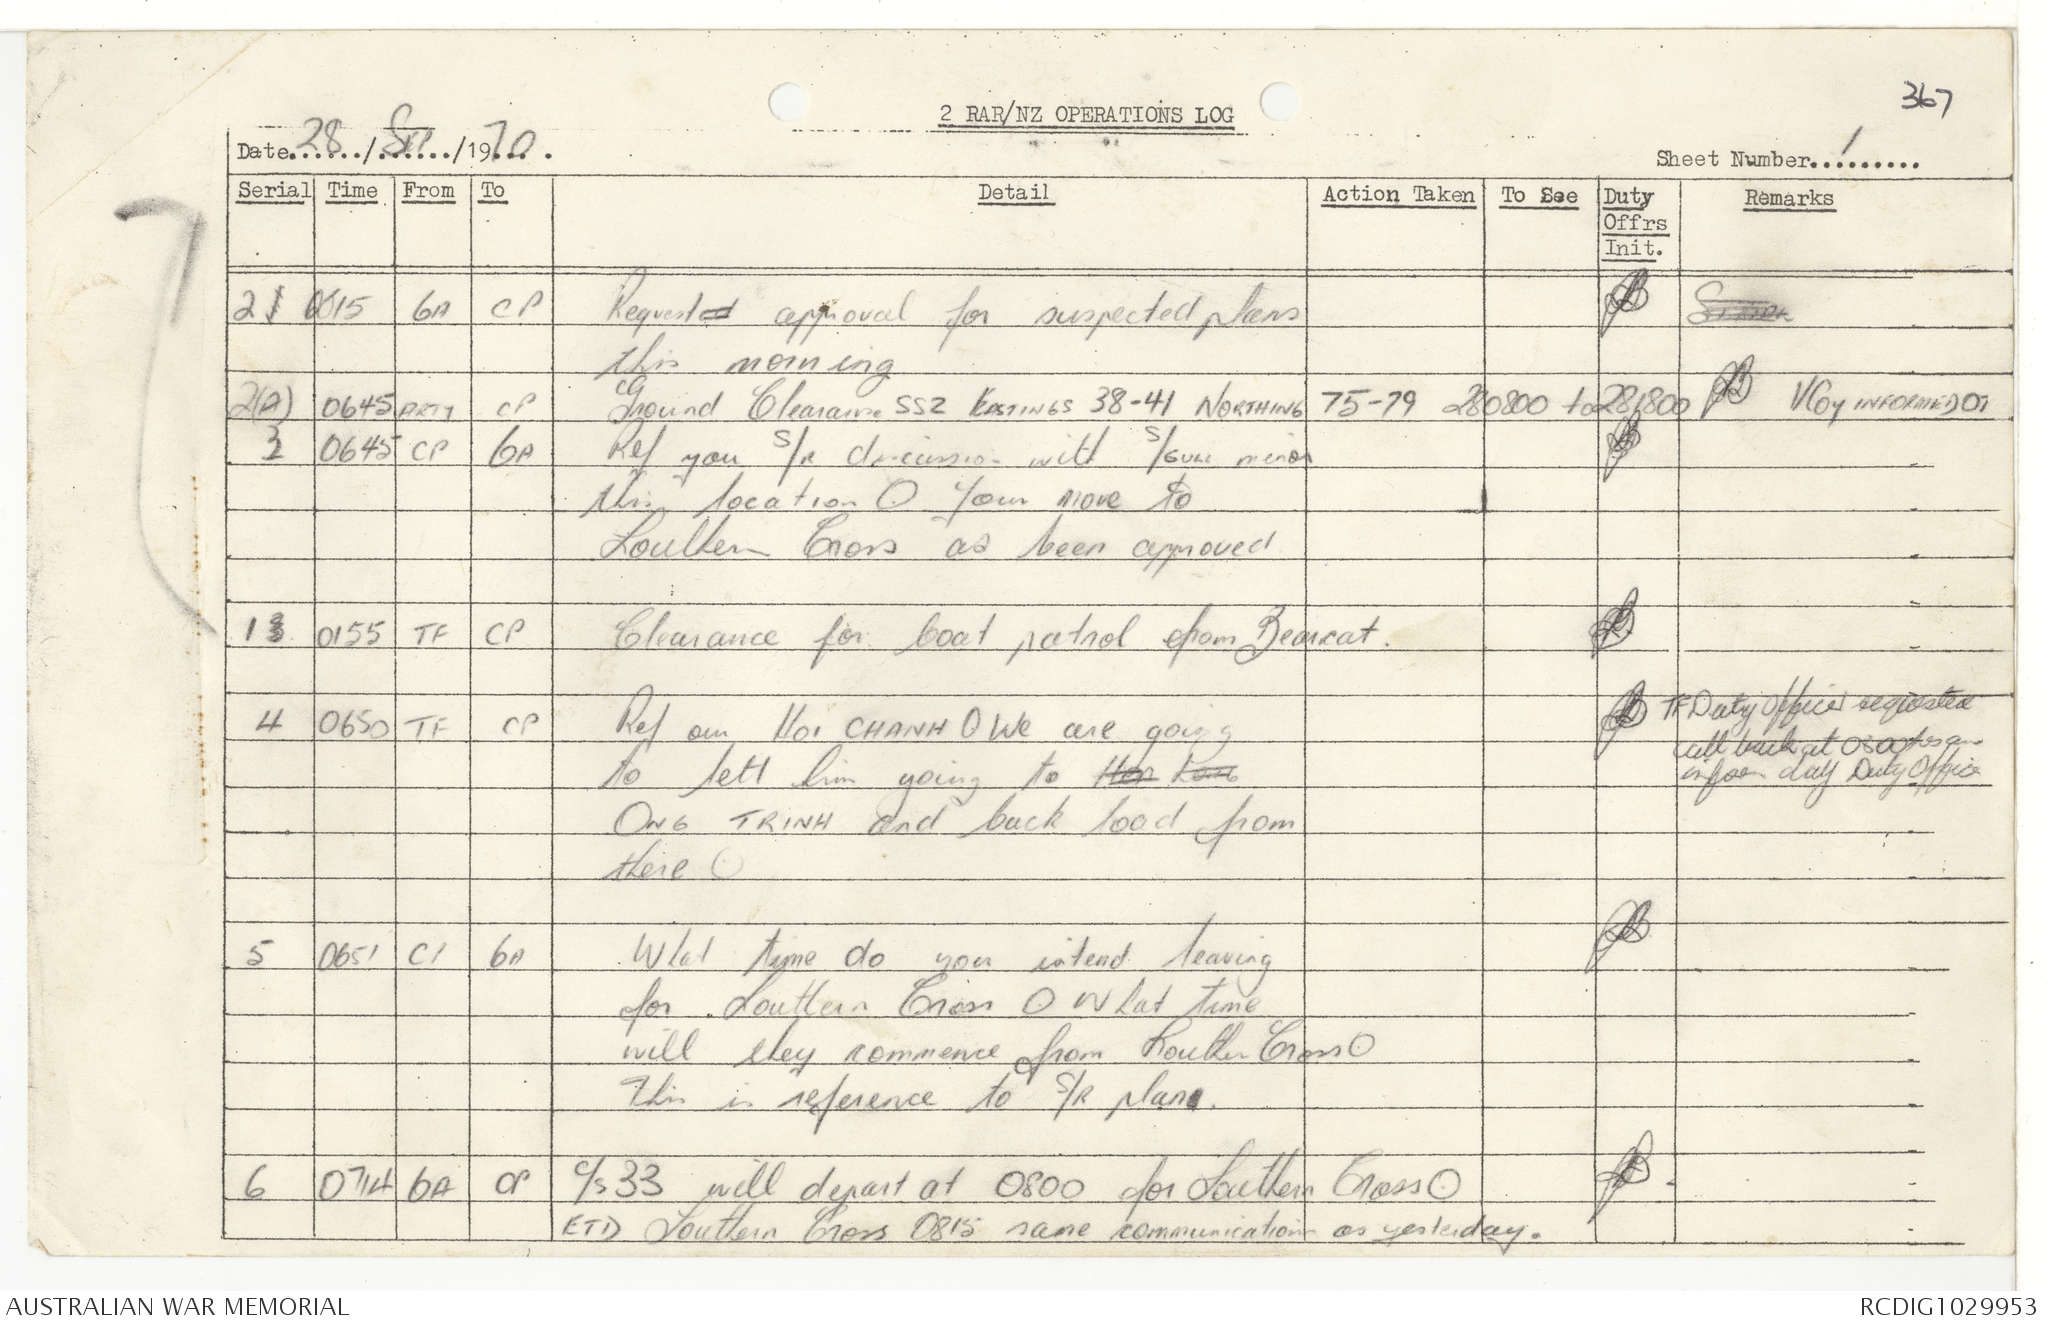 367
2 RAR/NZ OPERATIONS LOG
Date 28/Sep/1970.
Sheet Number 1
Serial Time From To Detail Action Taken To See Duty Offrs Init. Remarks
2 0615 6A CP Request approval for suspected plans
this morning
2(A) 0645 ARTY CP Ground Clearance SS2 EASTINGS 38-41 NORTHING 75-79 280800 to 281800 V Coy INFORMED
3 0645 CP 6A Ref you S/R discussion with S/Gull minor
this location O Your move to
Southern Cross as been approved
1 0155 TF CP Clearance for boat patrol from Bearcat.
4 0650 TF CP Ref our HOI CHANH O We are going
TF Duty Officer requested
to lett him going to
call back at 0800 hrs and
inform day Duty Office
ONG TRINH and back load from
there O
5 0651 CP 6A What time do you intend leaving
for Southern Cross O What time
will they commence from Southern Cross O
This is reference to S/R plan.
6 0714 6A CP C/S 33 will depart at 0800 for Southern Cross O
ETD Southern Cross 0815 same communication as yesterday.
AUSTRALIAN WAR MEMORIAL
RCDIG1029953